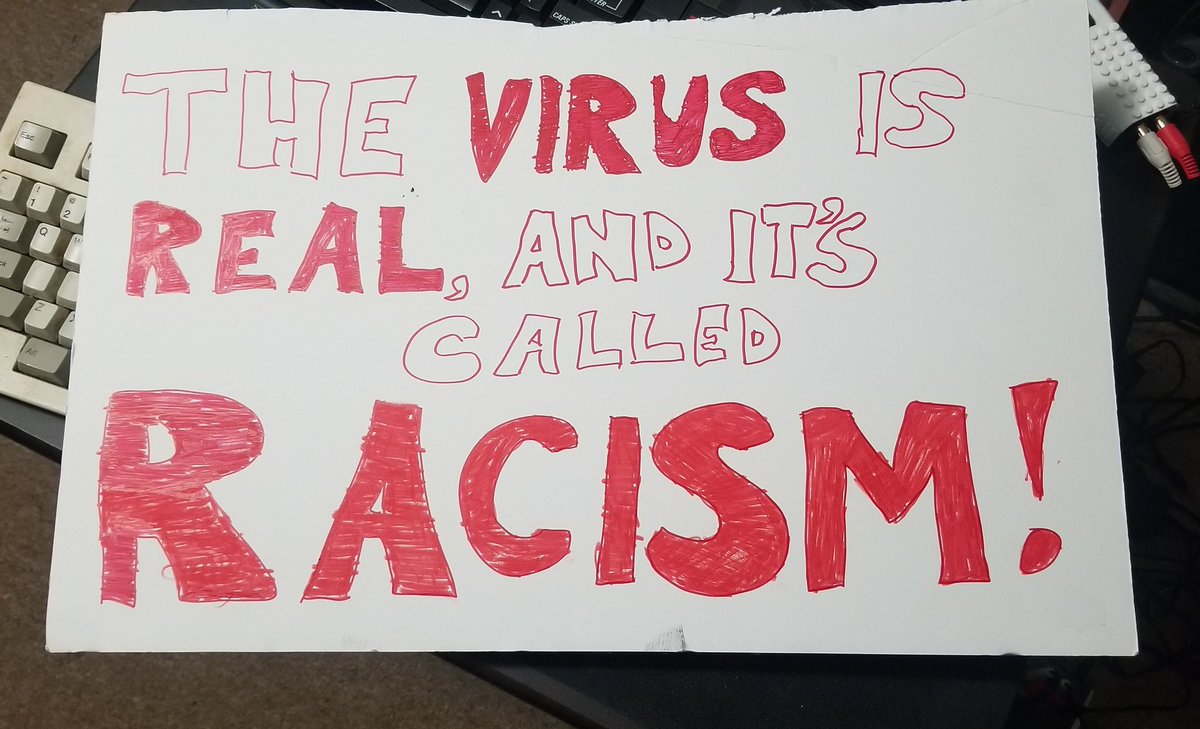 THE VIRUS IS
REAL, AND IT'S
CALLED
RACISM!
CAPS
Esc
1
@ 2
Q
Z
Alt